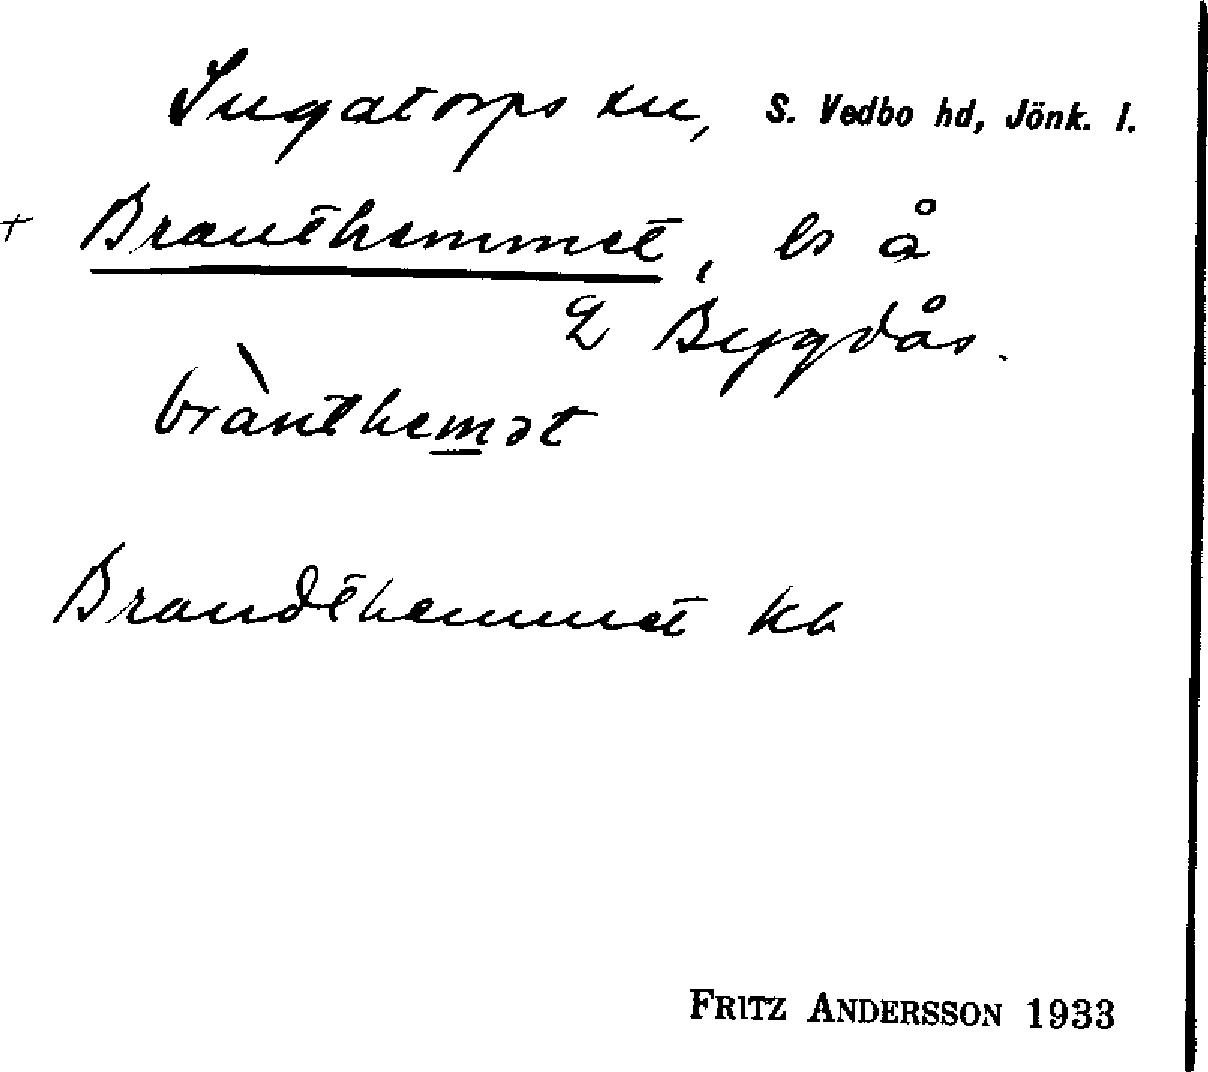 Ingatorps sn, S. Vedbo hd, Jönk. l.
+ Branthemmet, ls å
2 Bygdås.
brànthemət
Brandthemmet Kb
FRITZ ANDERSSON 1933